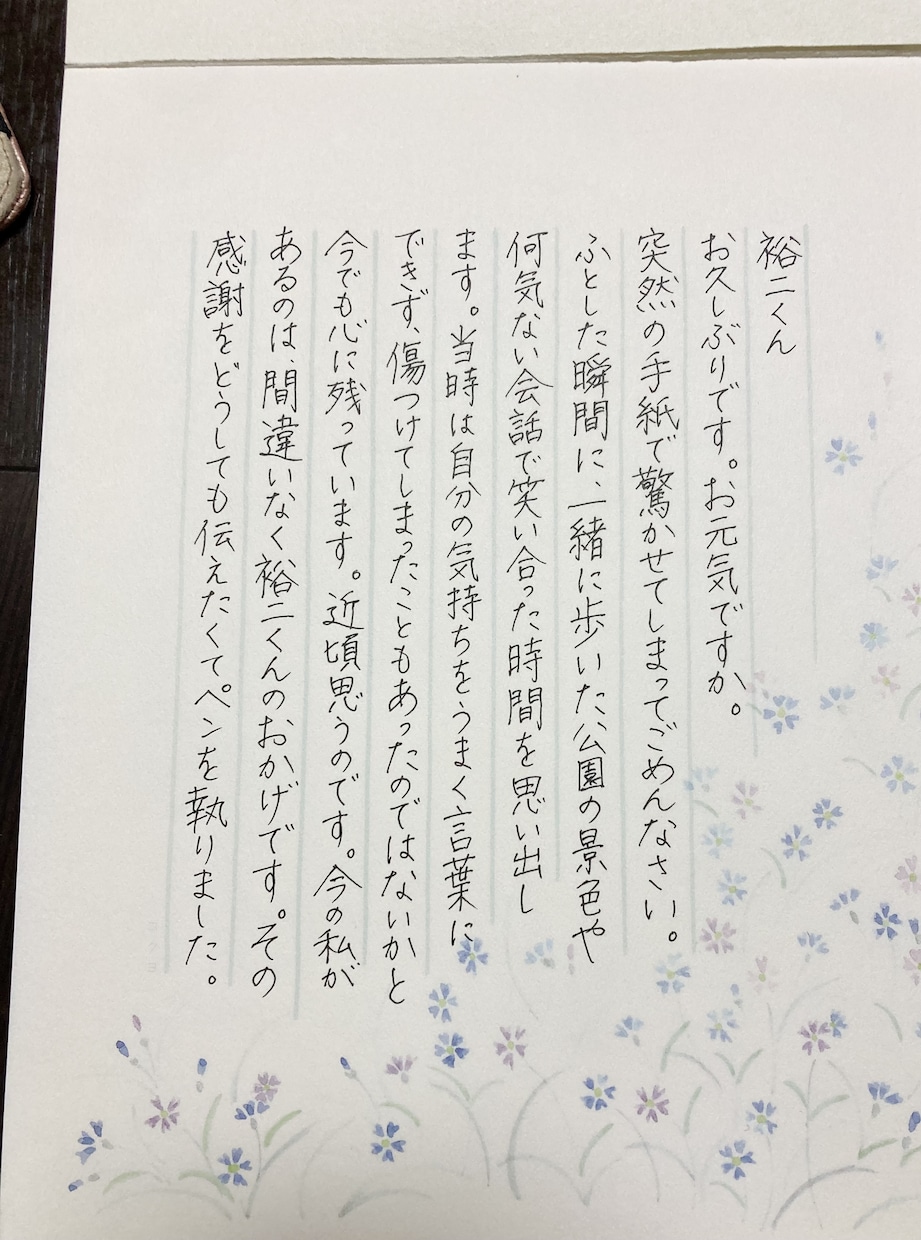 裕二くん
お久しぶりです。お元気ですか。
突然の手紙で驚かせてしまってごめんなさい。
ふとした瞬間に、一緒に歩いた公園の景色や
何気ない会話で笑い合った時間を思い出し
ます。当時は自分の気持ちをうまく言葉に
できず、傷つけてしまったこともあったのではないかと
今でも心に残っています。近頃思うのです。今の私が
あるのは、間違いなく裕二くんのおかげです。その
感謝をどうしても伝えたくてペンを執りました。